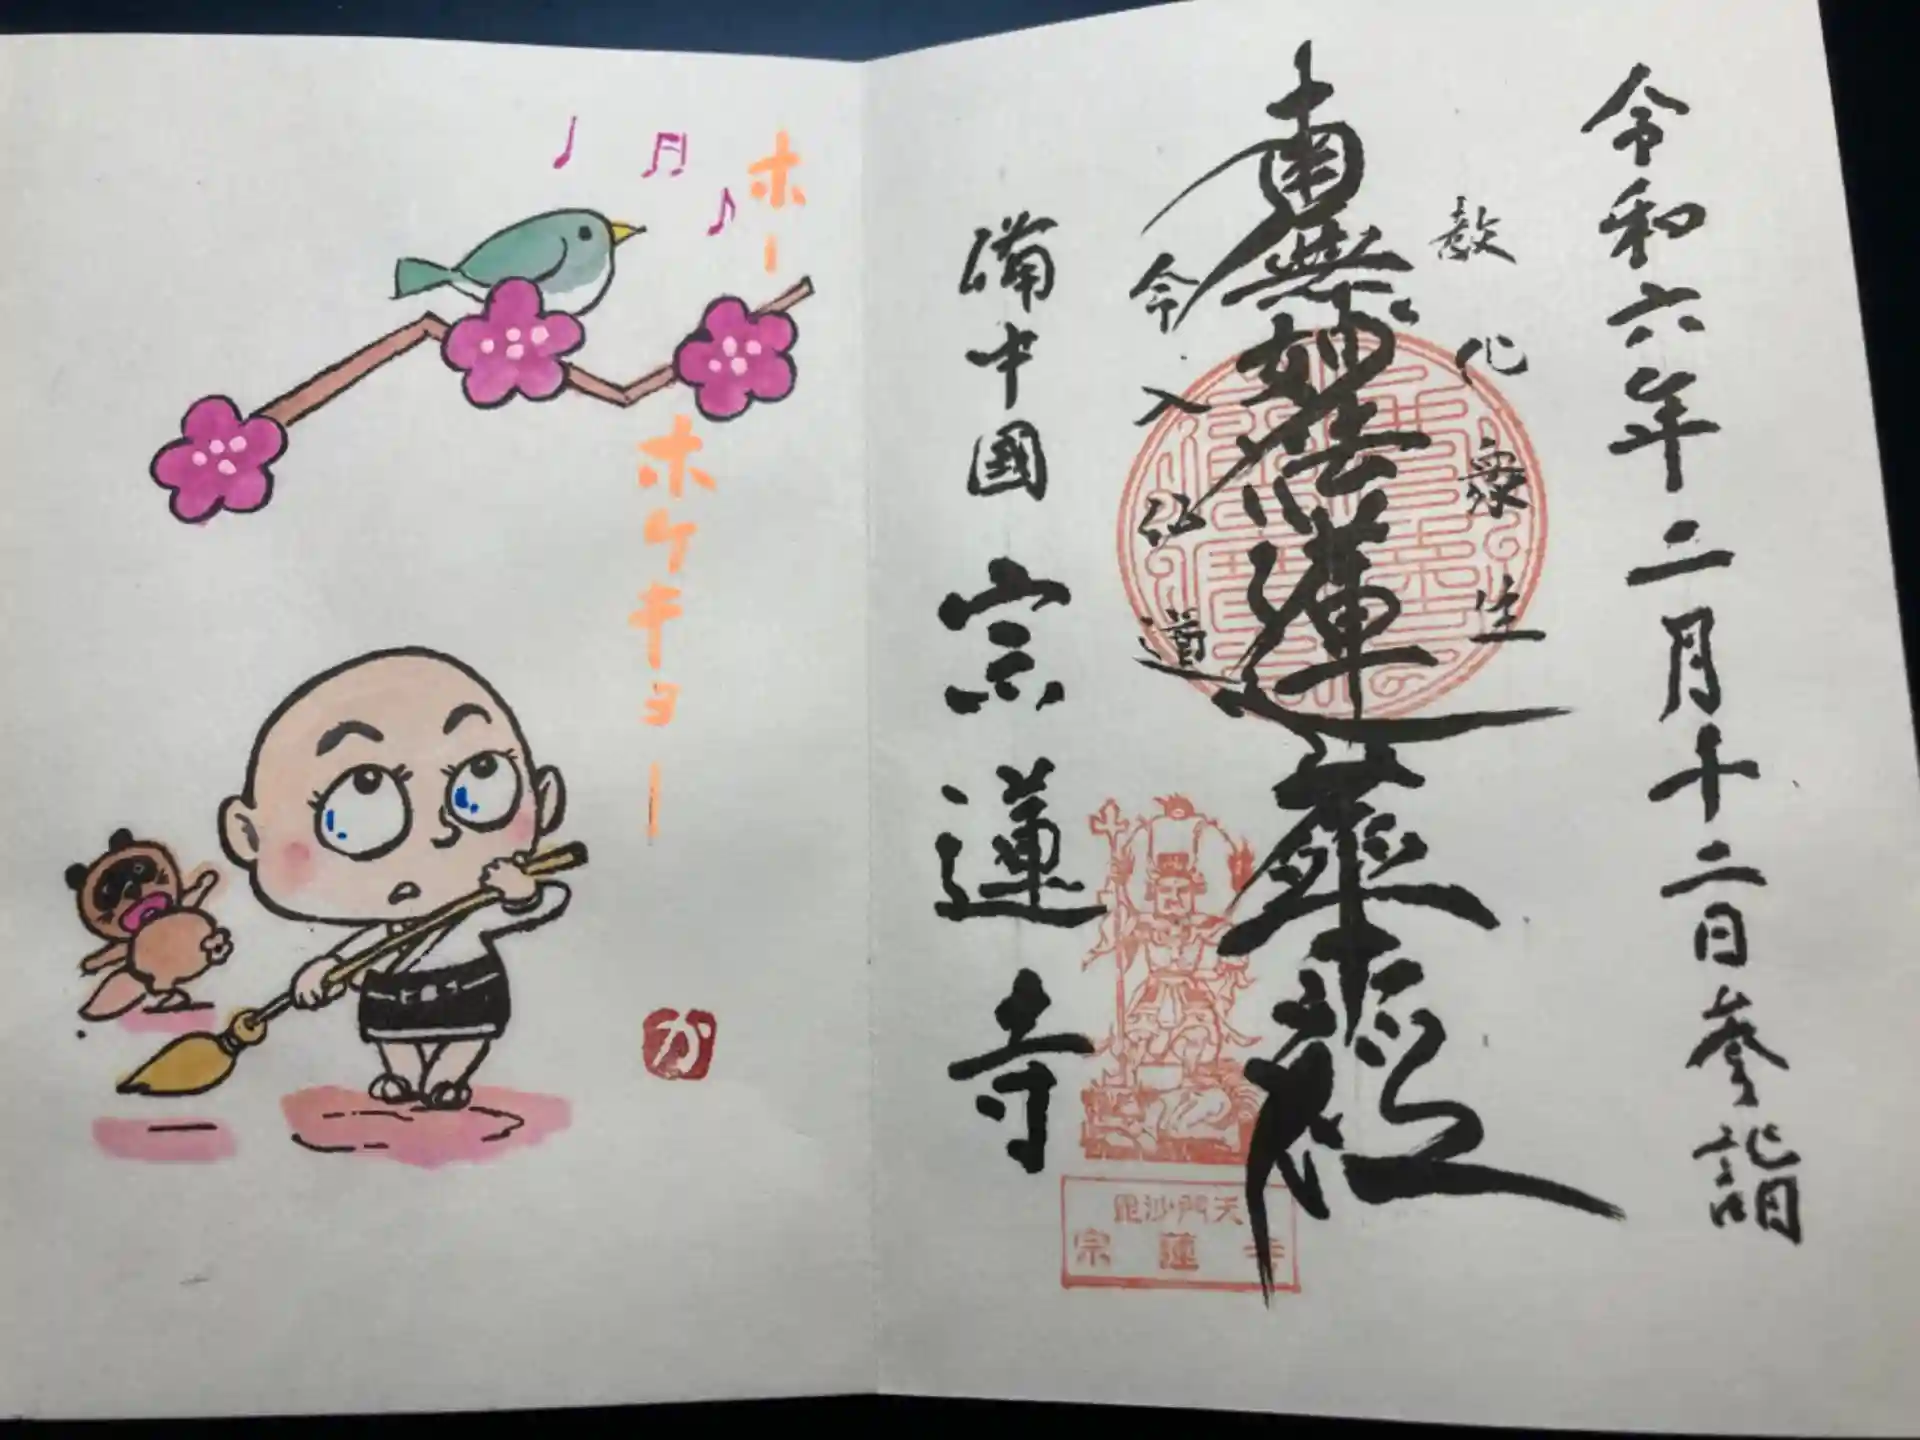 令和六年二月十二日参詣
教化衆生
南無妙法蓮華経
令入仏道
備中國 宗蓮寺
毘沙門天
宗蓮寺
ホー
ホケキョー
か